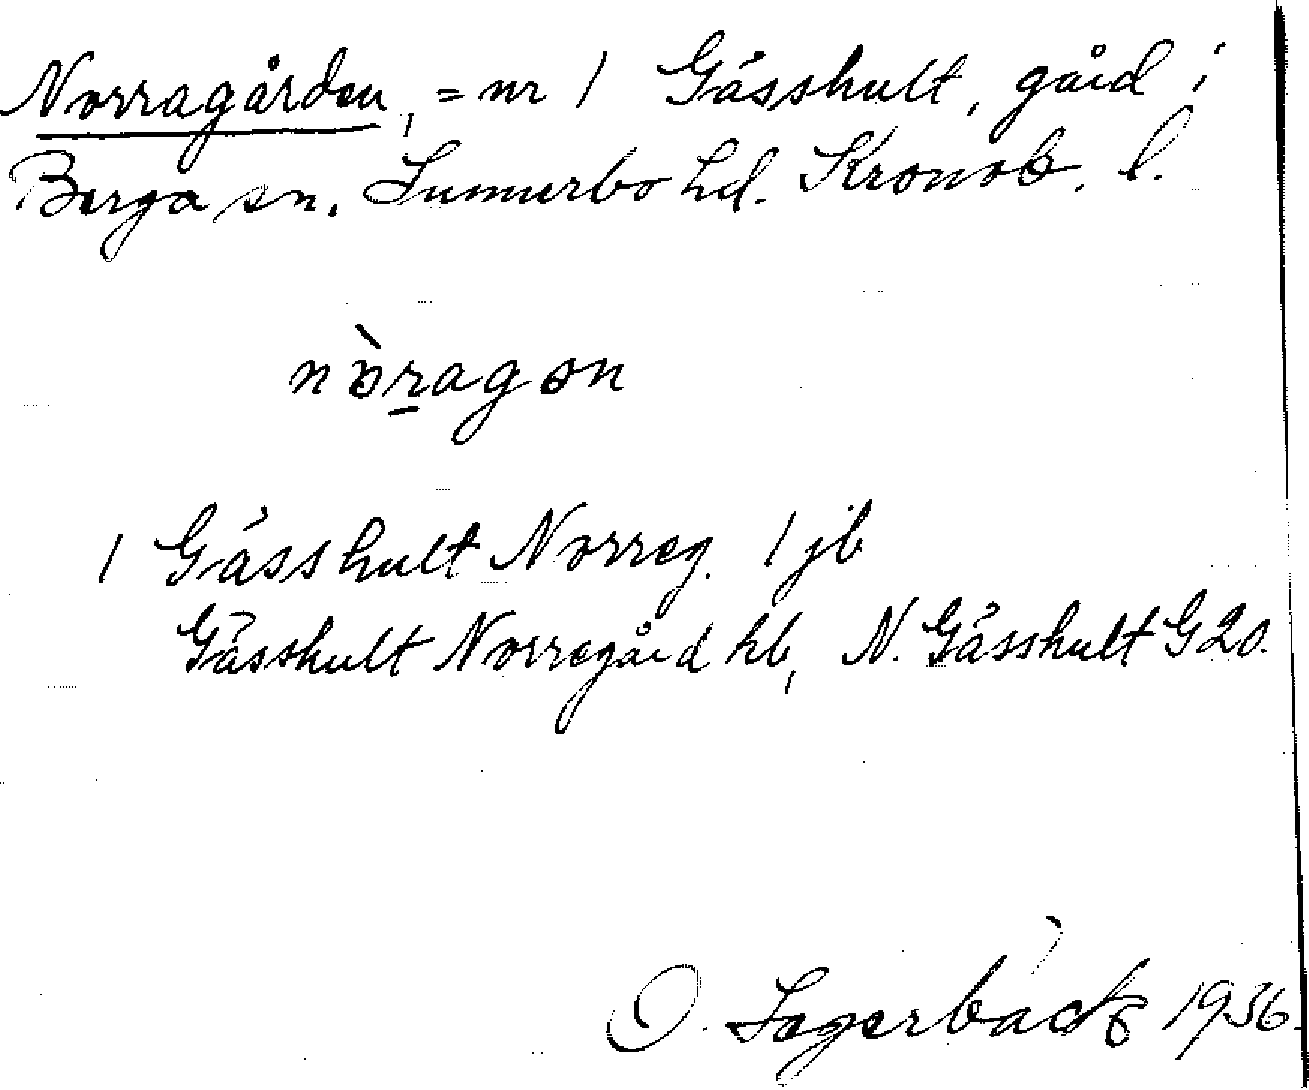 Norragården, = nr 1 Gåsshult, gård i
Berga sn. Sunnerbo hd. Kronob. l.
nòragon
1 Gåsshult Norreg. 1 jb
Gåsshult Norregård hb, N. Gåsshult G20.
O. Lagerbäck 1936.